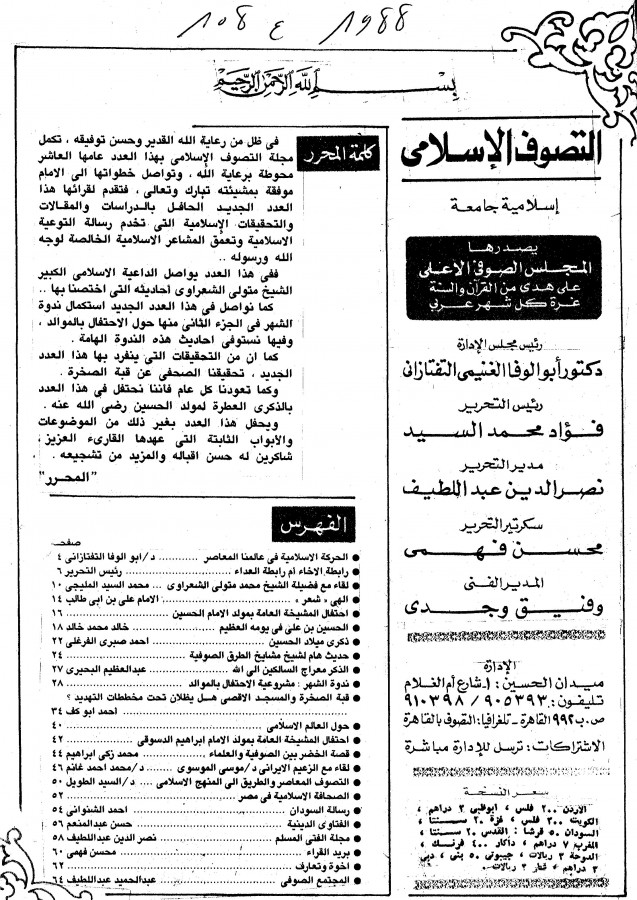 108 ع 1988
بسم الله الرحمن الرحيم
التصوف الإسلامى
إسلامية جامعة
يصدرها
المجلس الصوفى الأعلى
على هدى من القرآن والسنة
غرة كل شهر عربى
رئيس مجلس الإدارة
دكتور أبو الوفا الغنيمى التفتازانى
رئيس التحرير
فؤاد محمد السيد
مدير التحرير
نصر الدين عبد اللطيف
سكرتير التحرير
محسن فهمى
المدير الفنى
وفيق وجدى
الإدارة
ميدان الحسين : ١ شارع أم الغلام
تليفون : ٩٠٥٣٩٣ / ٩١٠٣٩٨
ص.ب ٩٩٢ القاهرة - تلغرافيا : التصوف بالقاهرة
الاشتراكات : ترسل للإدارة مباشرة
سعر النسخة
الاردن ٢٠٠ فلس ، ابوظبى ٣ دراهم ،
الكويت ٢٠٠ فلس ، غزة ٢٠ سنتا ،
السودان ٥٠ قرشا : القدس ٢٠ سنتا ،
المغرب ٧ دراهم ، داكار ٤٠٠ فرنك ،
الدوحة ٣ ريالات ، جيبوتى ٥٠ بنى ، دبى
٣ دراهم ، قطر ٣ ريالات .
كلمة المحرر
فى ظل من رعاية الله القدير وحسن توفيقه ، تكمل
مجلة التصوف الإسلامى بهذا العدد عامها العاشر
محوطة برعاية الله ، وتواصل خطواتها الى الامام
موفقة بمشيئته تبارك وتعالى ، فتقدم لقرائها هذا
العدد الجديد الحافل بالدراسات والمقالات
والتحقيقات الإسلامية التى تخدم رسالة التوعية
الاسلامية وتعمق المشاعر الاسلامية الخالصة لوجه
الله ورسوله ..
ففى هذا العدد يواصل الداعية الاسلامى الكبير
الشيخ متولى الشعراوى أحاديثه التى اختصنا بها ..
كما نواصل فى هذا العدد الجديد استكمال ندوة
الشهر فى الجزء الثانى منها حول الاحتفال بالموالد ،
وفيها نستوفى احاديث هذه الندوة الهامة .
كما ان من التحقيقات التى ينفرد بها هذا العدد
الجديد ، تحقيقنا الصحفى عن قبة الصخرة .
وكما تعودنا كل عام فاننا نحتفل فى هذا العدد
بالذكرى العطرة لمولد الحسين رضى الله عنه .
ويحفل هذا العدد بغير ذلك من الموضوعات
والأبواب الثابتة التى عهدها القارىء العزيز ،
شاكرين له حسن اقباله والمزيد من تشجيعه .
"المحرر"
الفهرس
صفحة
● الحركة الاسلامية فى عالمنا المعاصر ........... د/ابو الوفا التفتازانى ٤
● رابطة الاخاء أم رابطة العداء ........... رئيس التحرير ٦
● لقاء مع فضيلة الشيخ محمد متولى الشعراوى ... محمد السيد المليجى ١٠
● الهى « شعر » ........... الامام على بن ابى طالب ١٤
● احتفال المشيخة العامة بمولد الامام الحسين ........... ١٦
● الحسين بن على فى يومه العظيم ........... خالد محمد خالد ١٨
● ذكرى ميلاد الحسين ........... احمد صبرى الفرغلى ٢٢
● حديث هام لشيخ مشايخ الطرق الصوفية ........... ٢٤
● الذكر معراج السالكين الى الله ........... عبدالعظيم البحيرى ٢٧
● ندوة الشهر : مشروعية الاحتفال بالموالد ........... ٢٨
● قبة الصخرة والمسجد الاقصى هل يظلان تحت مخططات التهديد ؟
احمد ابو كف ٣٤
● حول العالم الاسلامى ........... ٤٠
● احتفال المشيخة العامة بمولد الامام ابراهيم الدسوقى ........... ٤٢
● قصة الخضر بين الصوفية والعلماء ........... محمد زكى ابراهيم ٤٤
● لقاء مع الزعيم الايرانى د/موسى الموسوى .... د/محمد احمد غانم ٤٦
● التصوف المعاصر والطريق الى المنهج الاسلامى .... د/السيد الطويل ٥٠
● الصحافة الاسلامية فى مصر ........... ٥٢
● رسالة السودان ........... احمد الشنوانى ٥٤
● الفتاوى الدينية ........... حسن عبدالمنعم ٥٦
● مجلة الفتى المسلم ........... نصر الدين عبداللطيف ٥٨
● بريد القراء ........... محسن فهمى ٦٠
● اخوة وتعارف ........... ٦٢
● المجتمع الصوفى ........... عبدالحميد عبداللطيف ٦٤